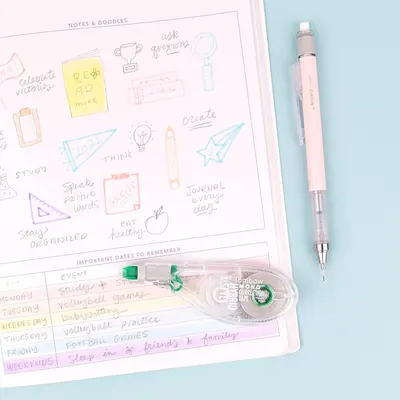 NOTES & DOODLES
celebrate
victories
ask
questions
READ
MORE
create
2022
THINK
STUDY
Speak
positive
words
JOURNAL
every
day
Stay
ORGANIZED
EAT
healthy
IMPORTANT DATES TO REMEMBER
EVENT
MONDAY
study
TUESDAY
volleyball games
WEDNESDAY
babysitting
THURSDAY
volleyball practice
FRIDAY
FOOTBALL GAMES
WEEKENDS
sleep in & friends & family
Tombow
MONO